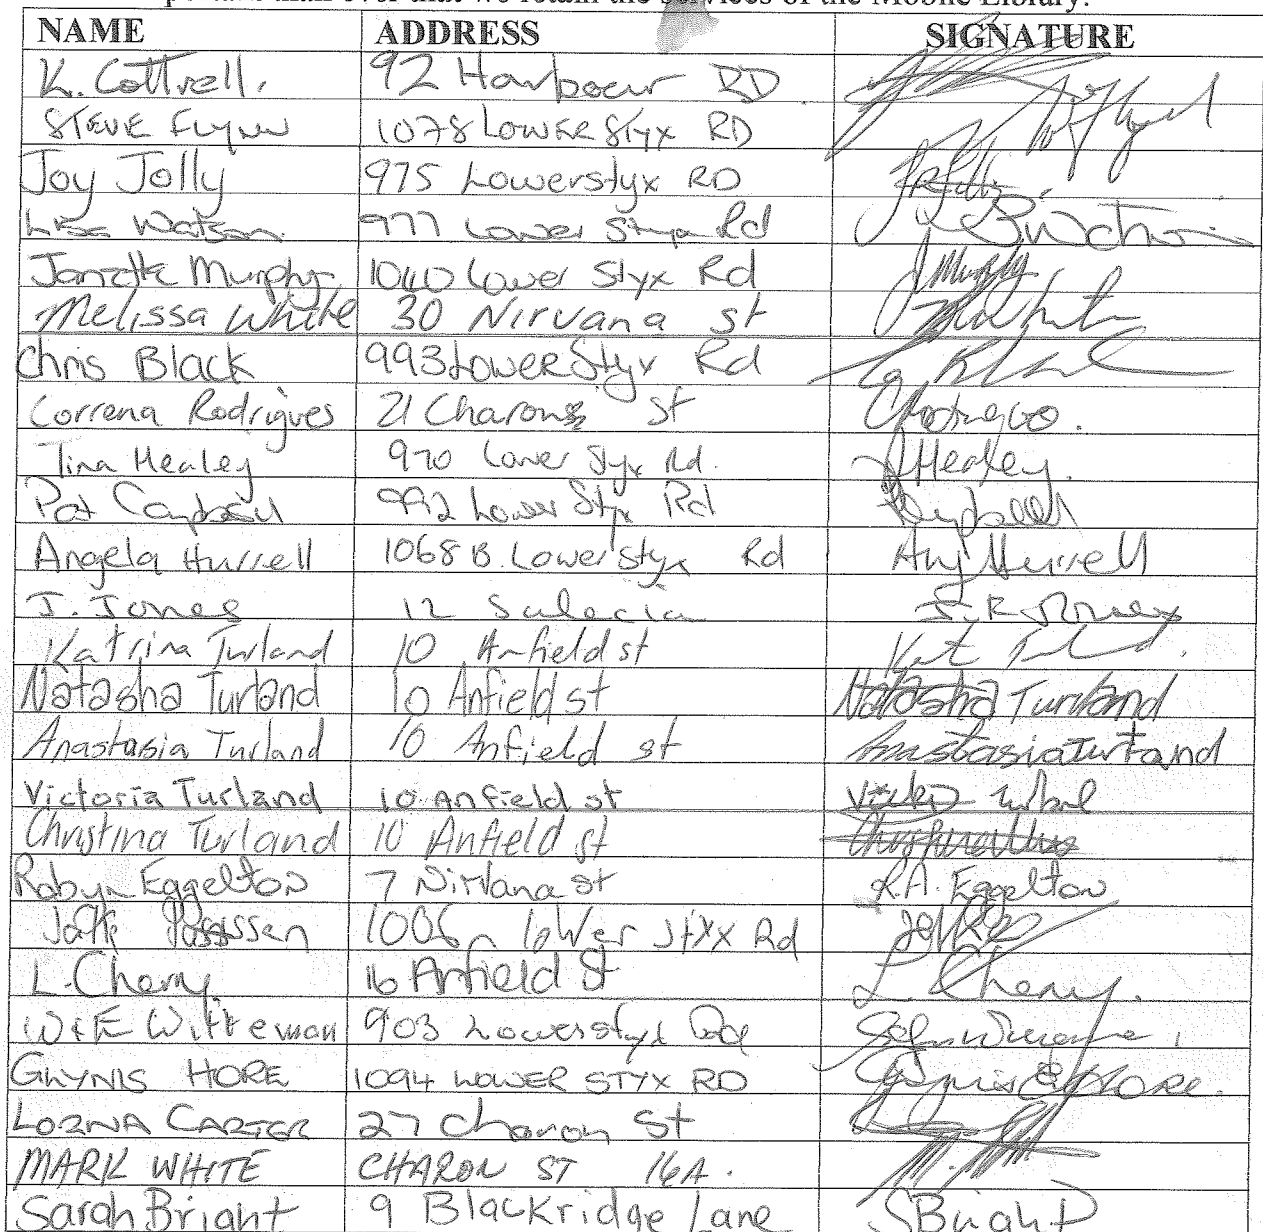 than ever that we retain the services of the Mobile Library.
NAME ADDRESS SIGNATURE
K. Cottrell. 92 Harbour RD
STEVE FLYNN 1078 LOWER Styx RD
Joy Jolly 975 Lowerstyx RD
Lisa Watson 977 Lower Styx Rd
Janette Murphy 1040 Lower Styx Rd J Murphy
Melissa White 30 Nirvana st
Chris Black 993 Lower Styx Rd
Correna Rodrigues 21 Charon st
Tina Healey 970 Lower Styx Rd. Healey.
Pat Campbell 992 Lower Styx Rd
Angela Hurrell 1068 B. Lower styx Rd Ang Hurrell
J. Jones 12 J.R. Jones
Katrina Turland 10 Anfield st
Natasha Turland 10 Anfield st Natasha Turland
Anastasia Turland 10 Anfield st Anastasia Turland
Victoria Turland 10 Anfield st
Christina Turland 10 Anfield st
Robyn Eggelton 7 Nirvana st R.A. Eggelton
1006 lower Styxx Rd
L. Cherry 16 Anfield St L. Cherry.
W & E Witteman 903 Lowerstyx Rd
GLYNIS HORE 1094 LOWER STYX RD Glynis E Hore.
LORNA CARTER 27 Charon St
MARK WHITE CHARON ST 16A.
Sarah Bright 9 Blackridge Lane SBright